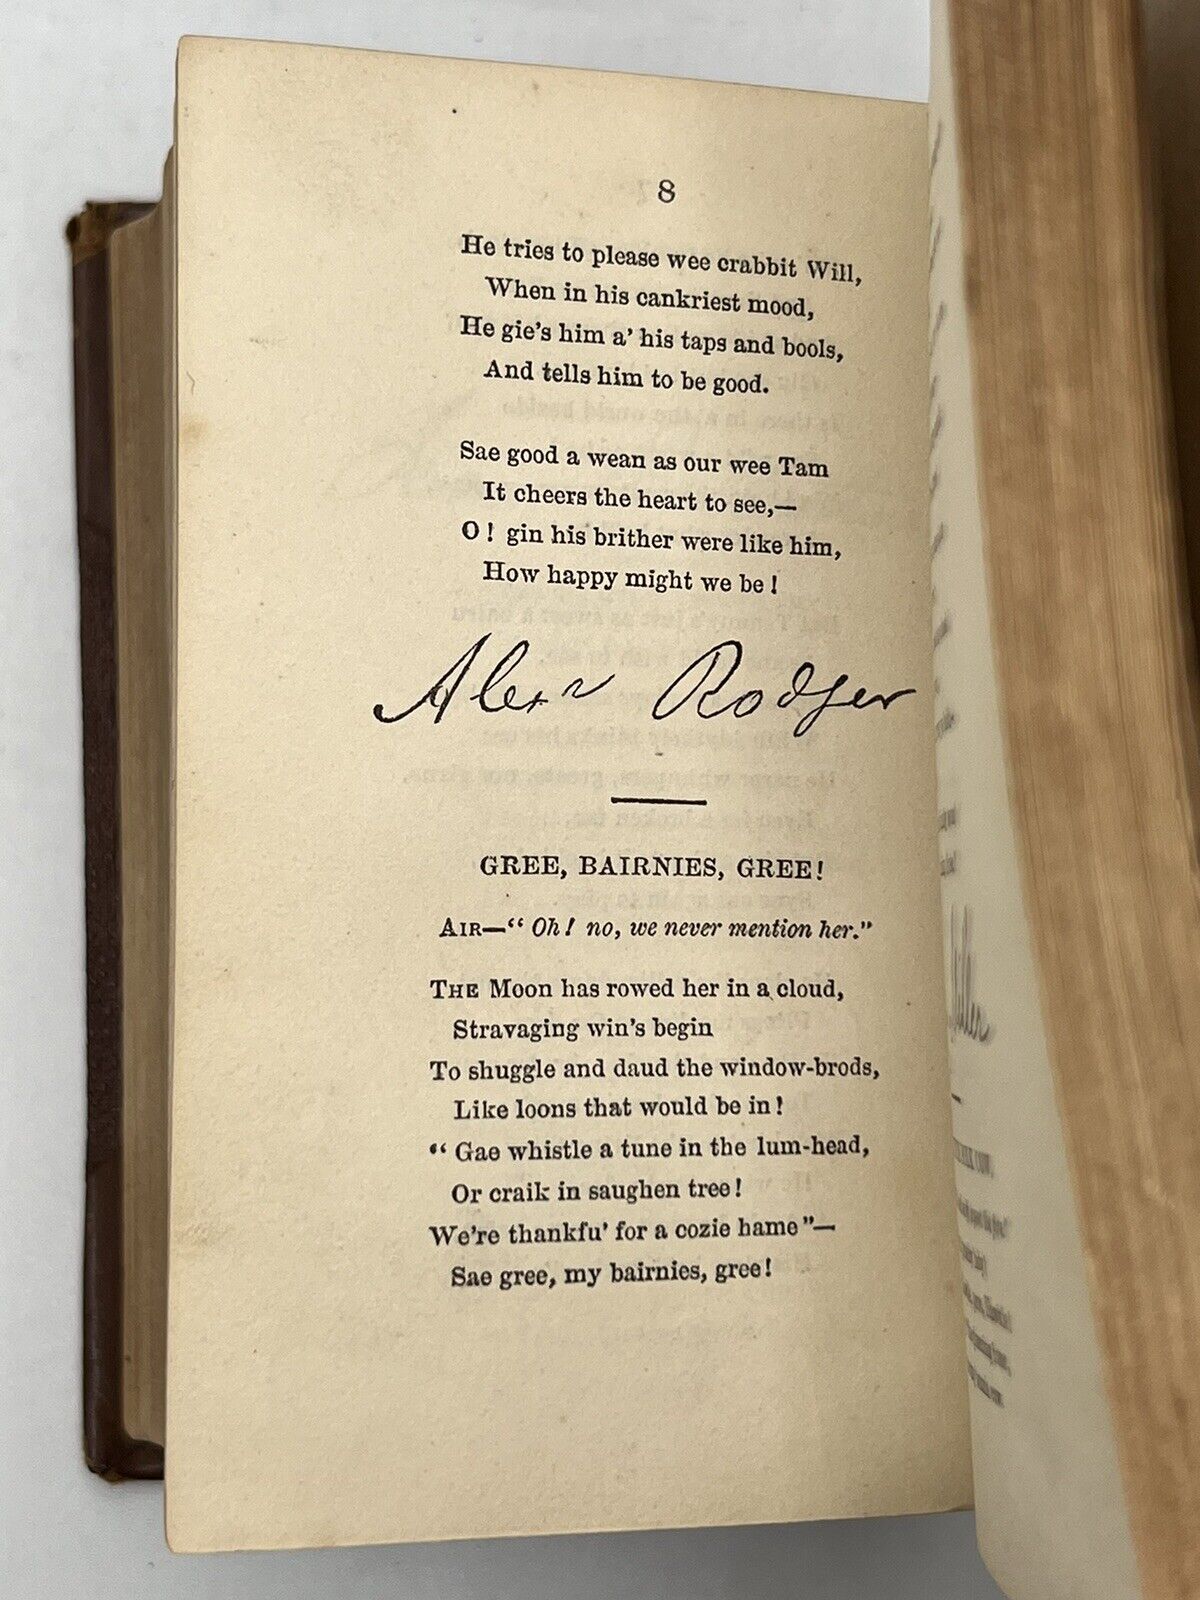 8
He tries to please wee crabbit Will,
When in his cankriest mood,
He gie's him a' his taps and bools,
And tells him to be good.
Sae good a wean as our wee Tam
It cheers the heart to see,—
O! gin his brither were like him,
How happy might we be!
Alexr Rodger
GREE, BAIRNIES, GREE!
AIR—“ Oh! no, we never mention her.”
THE Moon has rowed her in a cloud,
Stravaging win's begin
To shuggle and daud the window-brods,
Like loons that would be in!
“ Gae whistle a tune in the lum-head,
Or craik in saughen tree!
We're thankfu' for a cozie hame”—
Sae gree, my bairnies, gree!